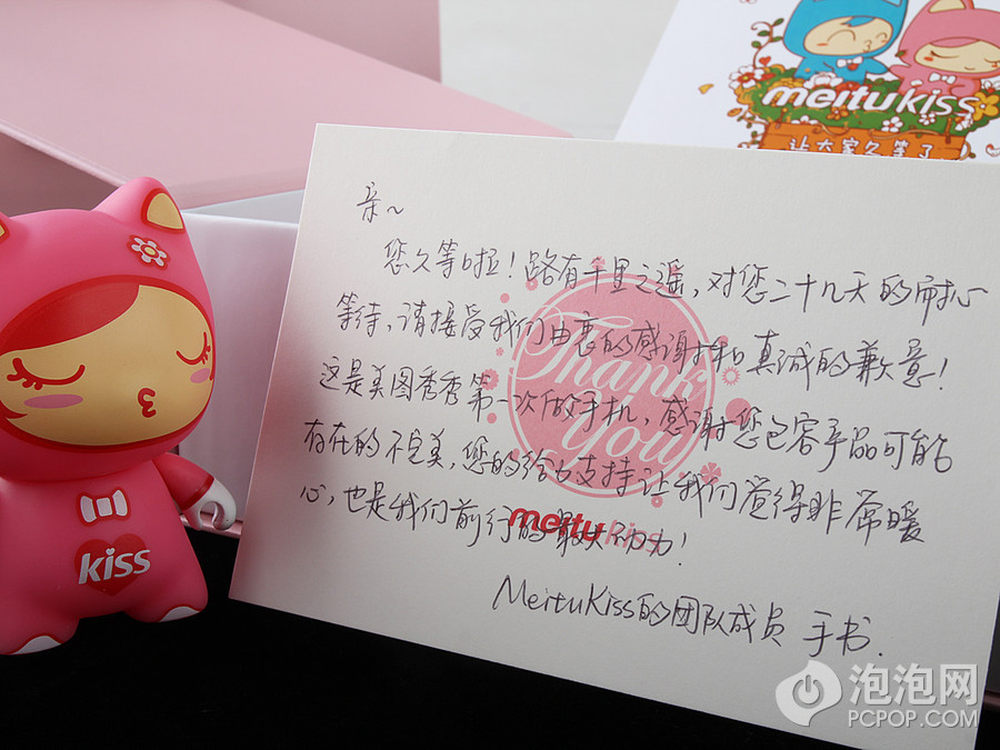 meitu kiss
让大家久等了
亲~
您久等啦！路有千里之遥，对您二十几天的耐心
等待，请接受我们由衷的感谢和真诚的歉意！
这是美图秀秀第一次做手机，感谢您包容产品可能
存在的不完美，您的给力支持让我们觉得非常暖
心，也是我们前行的最大动力！
MeituKiss的团队成员 手书.
Thank
You
meitu kiss
kiss
泡泡网
PCPOP.COM